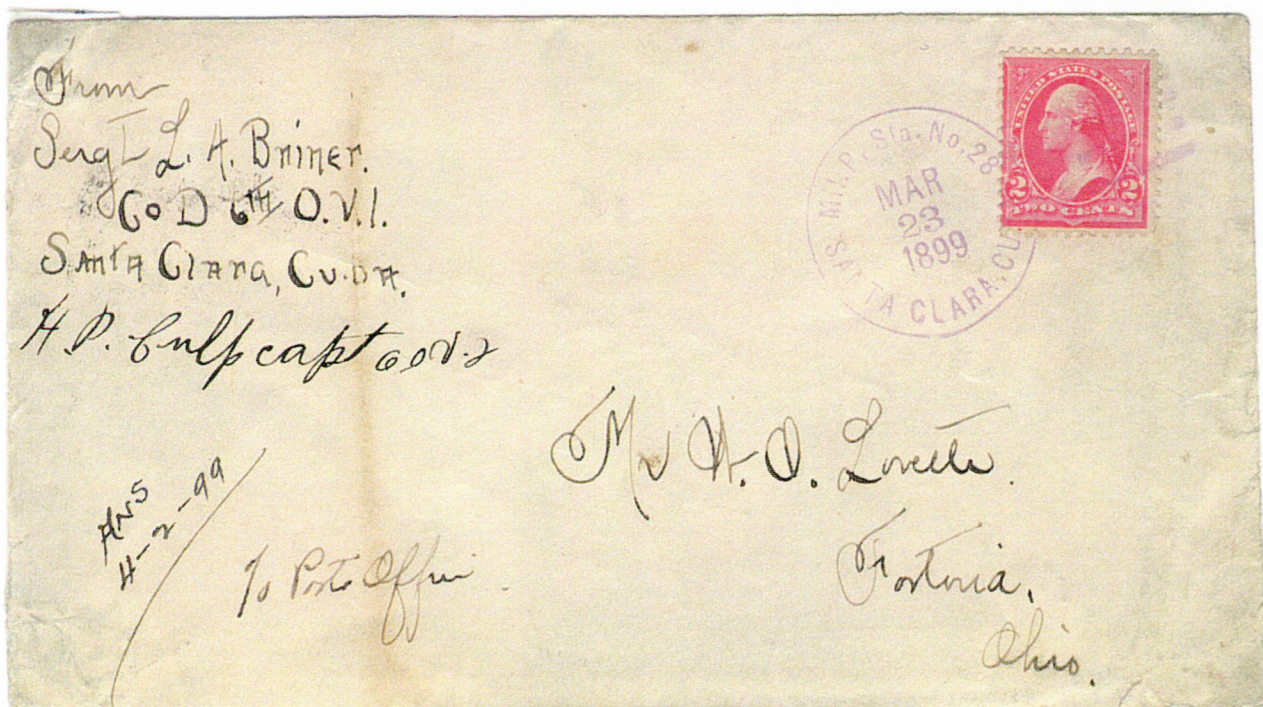 From
Sergt L. A. Briner.
Co D 6th O.V.I.
Santa Clara, Cuba.
H. P. Culp capt 6 O V I
U.S. M.P. Sta. No. 28
MAR
23
1899
SANTA CLARA, CU
UNITED STATES POSTAGE
2 2
TWO CENTS
Mr W. O. Lovette.
Fostoria,
Ohio.
Ans
4-2-99
% Post Office